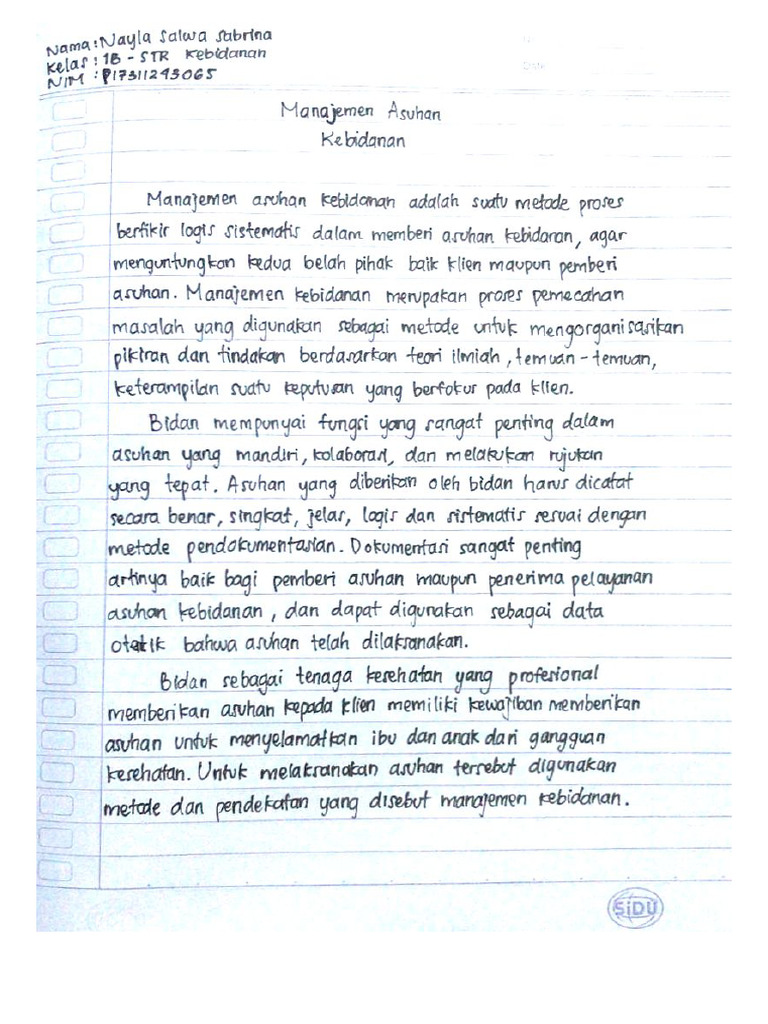 Nama : Nayla Salwa Sabrina
Kelas : 1B - STR Kebidanan
NIM : P17311243065
Manajemen Asuhan
Kebidanan
Manajemen asuhan kebidanan adalah suatu metode proses
berfikir logis sistematis dalam memberi asuhan kebidanan, agar
menguntungkan kedua belah pihak baik klien maupun pemberi
asuhan. Manajemen kebidanan merupakan proses pemecahan
masalah yang digunakan sebagai metode untuk mengorganisasikan
pikiran dan tindakan berdasarkan teori ilmiah, temuan - temuan,
keterampilan suatu keputusan yang berfokus pada klien.
Bidan mempunyai fungsi yang sangat penting dalam
asuhan yang mandiri, kolaborasi, dan melakukan rujukan
yang tepat. Asuhan yang diberikan oleh bidan harus dicatat
secara benar, singkat, jelas, logis dan sistematis sesuai dengan
metode pendokumentasian. Dokumentasi sangat penting
artinya baik bagi pemberi asuhan maupun penerima pelayanan
asuhan kebidanan, dan dapat digunakan sebagai data
bahwa asuhan telah dilaksanakan.
Bidan sebagai tenaga kesehatan yang profesional
memberikan asuhan kepada klien memiliki kewajiban memberikan
asuhan untuk menyelamatkan ibu dan anak dari gangguan
kesehatan. Untuk melaksanakan asuhan tersebut digunakan
metode dan pendekatan yang disebut manajemen kebidanan.
SiDU